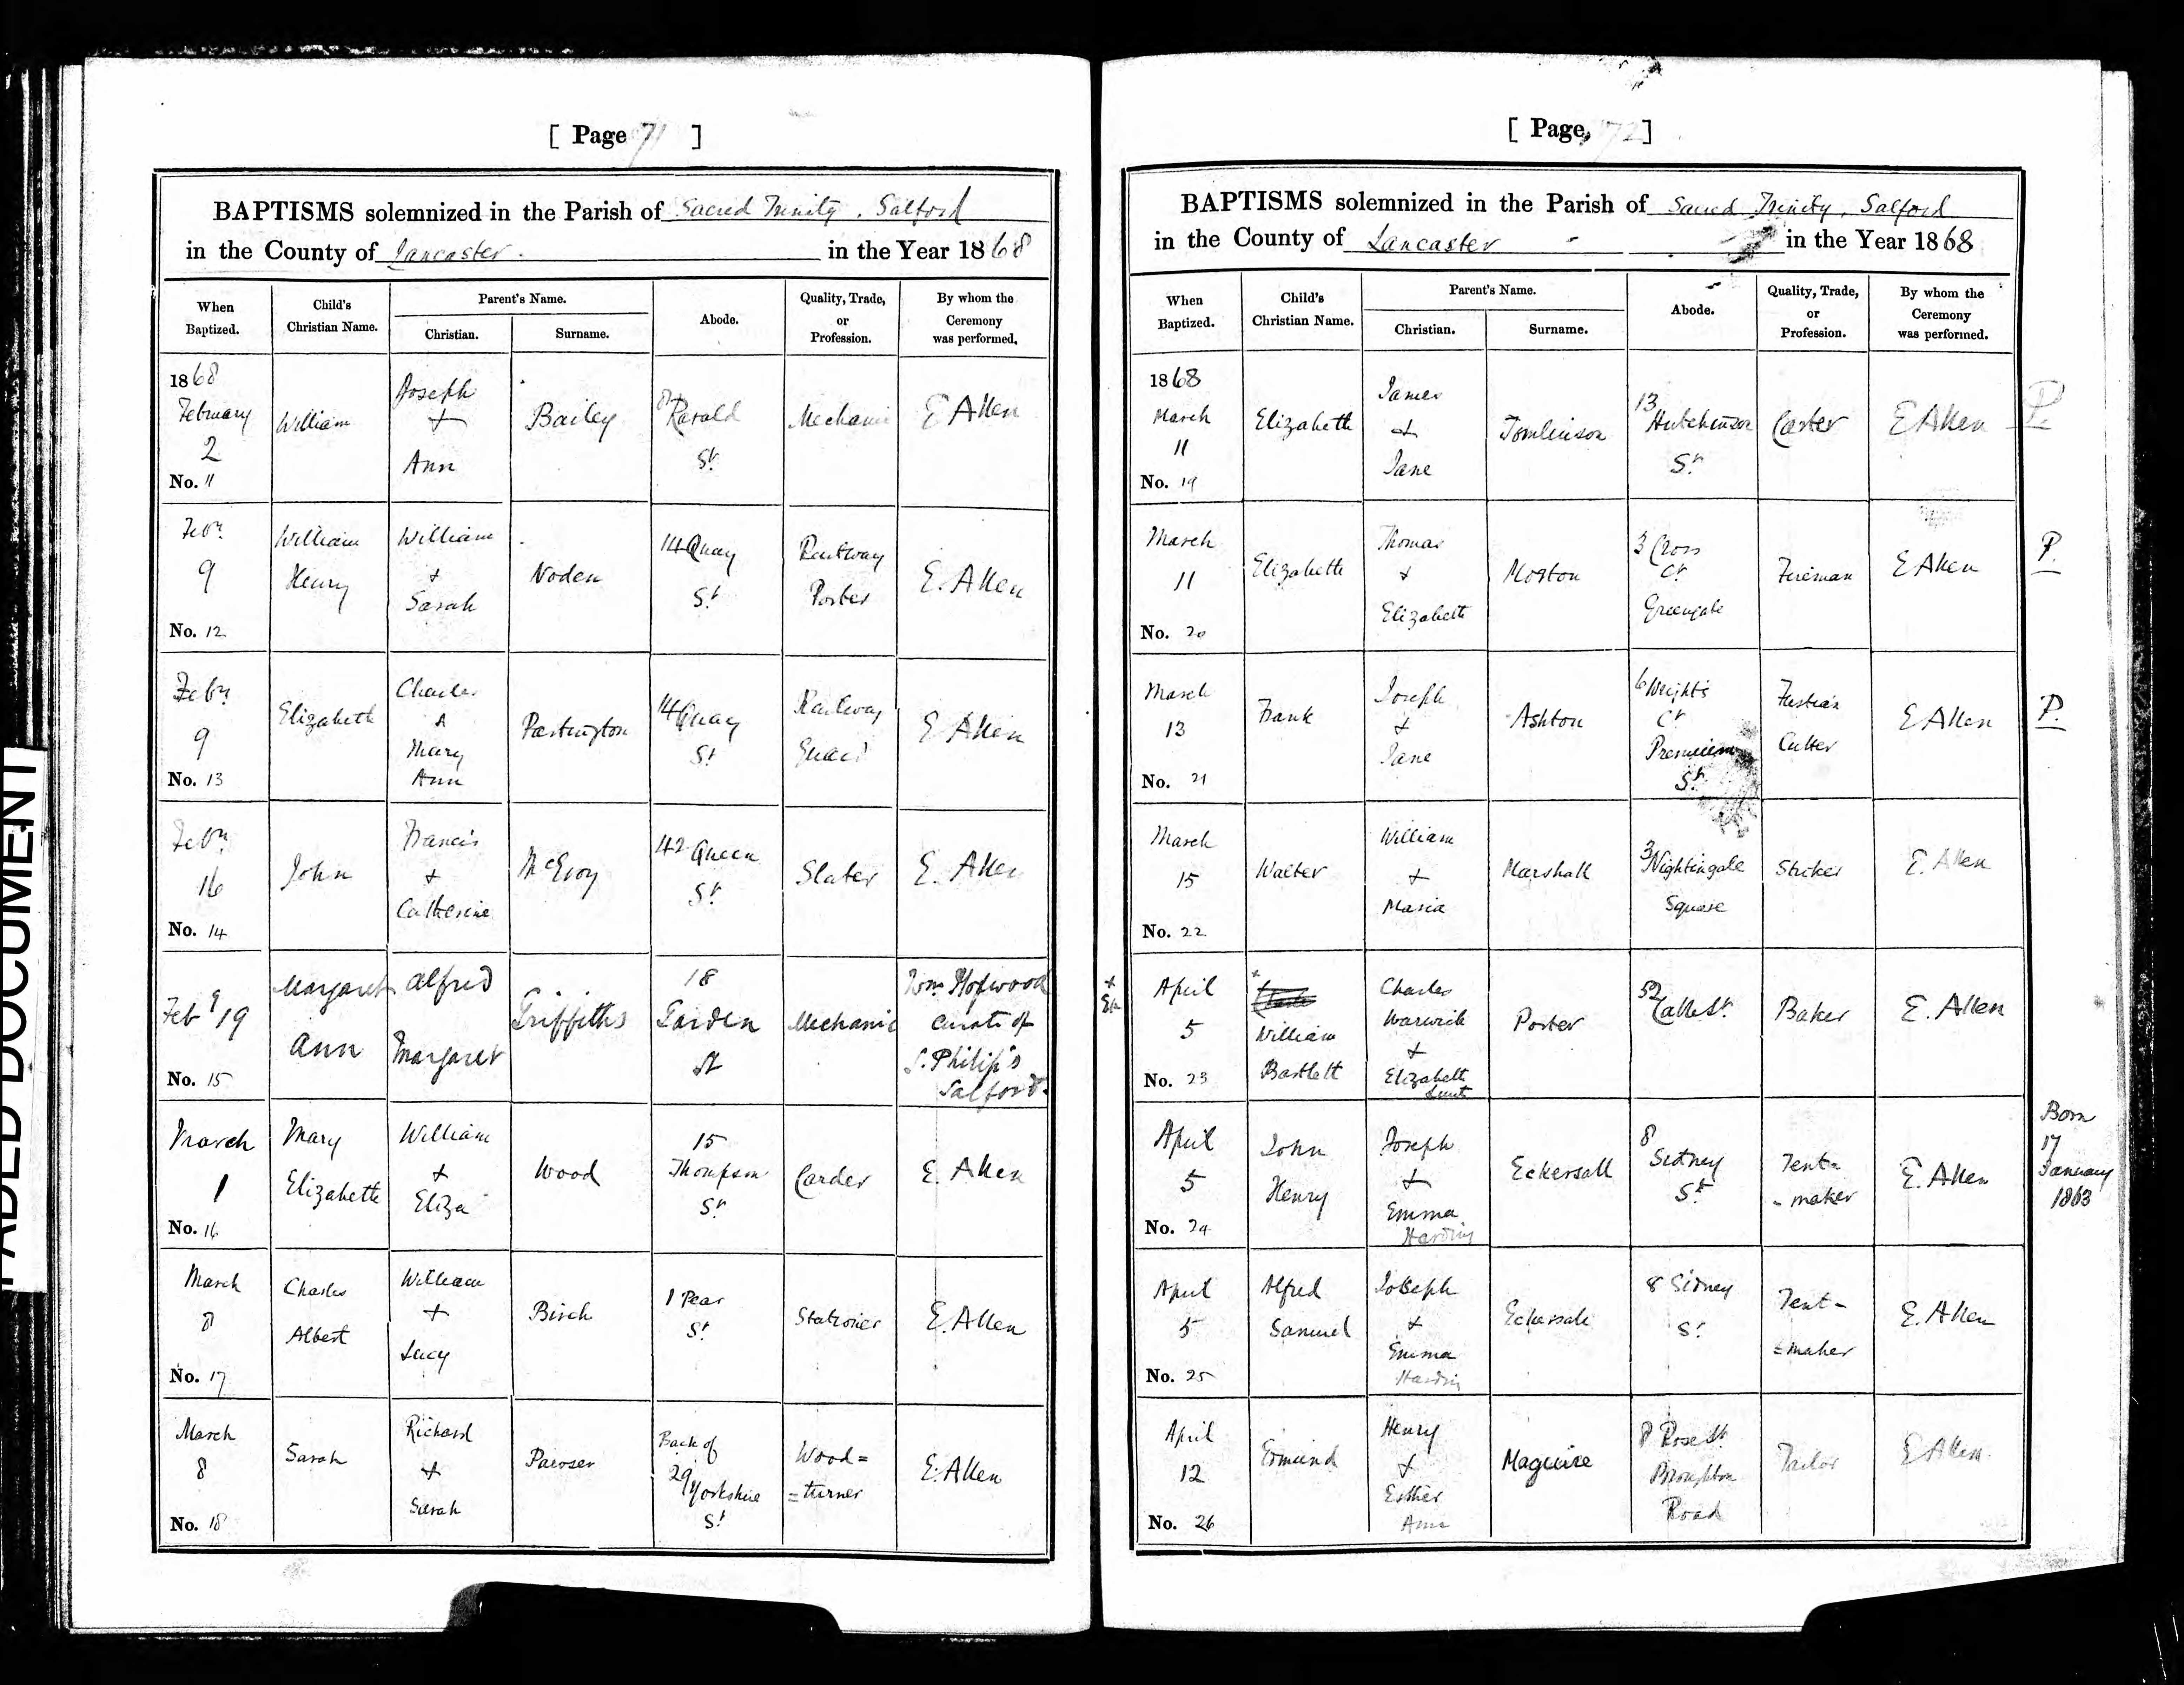 [ Page 71 ]
BAPTISMS solemnized in the Parish of Sacred Trinity, Salford
in the County of Lancaster. in the Year 1868
When Baptized.
Child's Christian Name.
Parent's Name.
Christian.
Surname.
Abode.
Quality, Trade, or Profession.
By whom the Ceremony was performed.
1868
February
2
No. 11
William
Joseph
+
Ann
Bailey
St
Mechanic
E Allen
Febr
9
No. 12
William
Henry
William
+
Sarah
Noden
14 Quay
St
Railway
Porter
E. Allen
Febr
9
No. 13
Elizabeth
Charles
&
Mary
Ann
Partington
14 Quay
St
Railway
Guard
E Allen
Febr
16
No. 14
John
Francis
+
Catherine
McEvoy
42 Queen
St
Slater
E. Allen
Feby 19
No. 15
Margaret
Ann
Alfred
Margaret
Griffiths
18
Garden
St
Mechanic
Wm Hopwood
Curate of
S. Philip's
Salford.
March
1
No. 16
Mary
Elizabeth
William
+
Eliza
Wood
15
Thompson
St
Carder
E. Allen
March
8
No. 17
Charles
Albert
William
+
Lucy
Birch
1 Pear
St
Stationer
E. Allen
March
8
No. 18
Sarah
Richard
+
Sarah
Back of
29 Yorkshire
St
Wood=
=turner
E. Allen
[ Page, 72 ]
BAPTISMS solemnized in the Parish of Sacred Trinity, Salford
in the County of Lancaster in the Year 1868
When Baptized.
Child's Christian Name.
Parent's Name.
Christian.
Surname.
Abode.
Quality, Trade, or Profession.
By whom the Ceremony was performed.
1868
March
11
No. 19
Elizabeth
James
+
Jane
Tomlinson
13
Hutchinson
St
Carter
E Allen
P.
March
11
No. 20
Elizabeth
Thomas
+
Elizabeth
Morton
3 Cross
Ct
Greengate
Fireman
E Allen
P.
March
13
No. 21
Frank
Joseph
+
Jane
Ashton
6 Weights
Ct
St
Fustian
Cutter
E Allen
P.
March
15
No. 22
Walter
William
+
Maria
Marshall
3 Nightingale
Square
Striker
E. Allen
+
EA
April
5
No. 23
x
William
Bartlett
Charles
Warwick
+
Elizabeth
Lunt
Porter
52
Baker
E. Allen
April
5
No. 24
John
Henry
Joseph
+
Emma
Harding
Eckersall
8
Sidney
St
Tent=
-maker
E. Allen
Born
17
January
1863
April
5
No. 25
Alfred
Samuel
Joseph
+
Emma
Harding
Eckersall
8 Sidney
St
Tent-
=maker
E. Allen
April
12
No. 26
Edmund
Henry
+
Esther
Ann
Maguire
8 Rose St
Broughton
Road
Tailor
E Allen